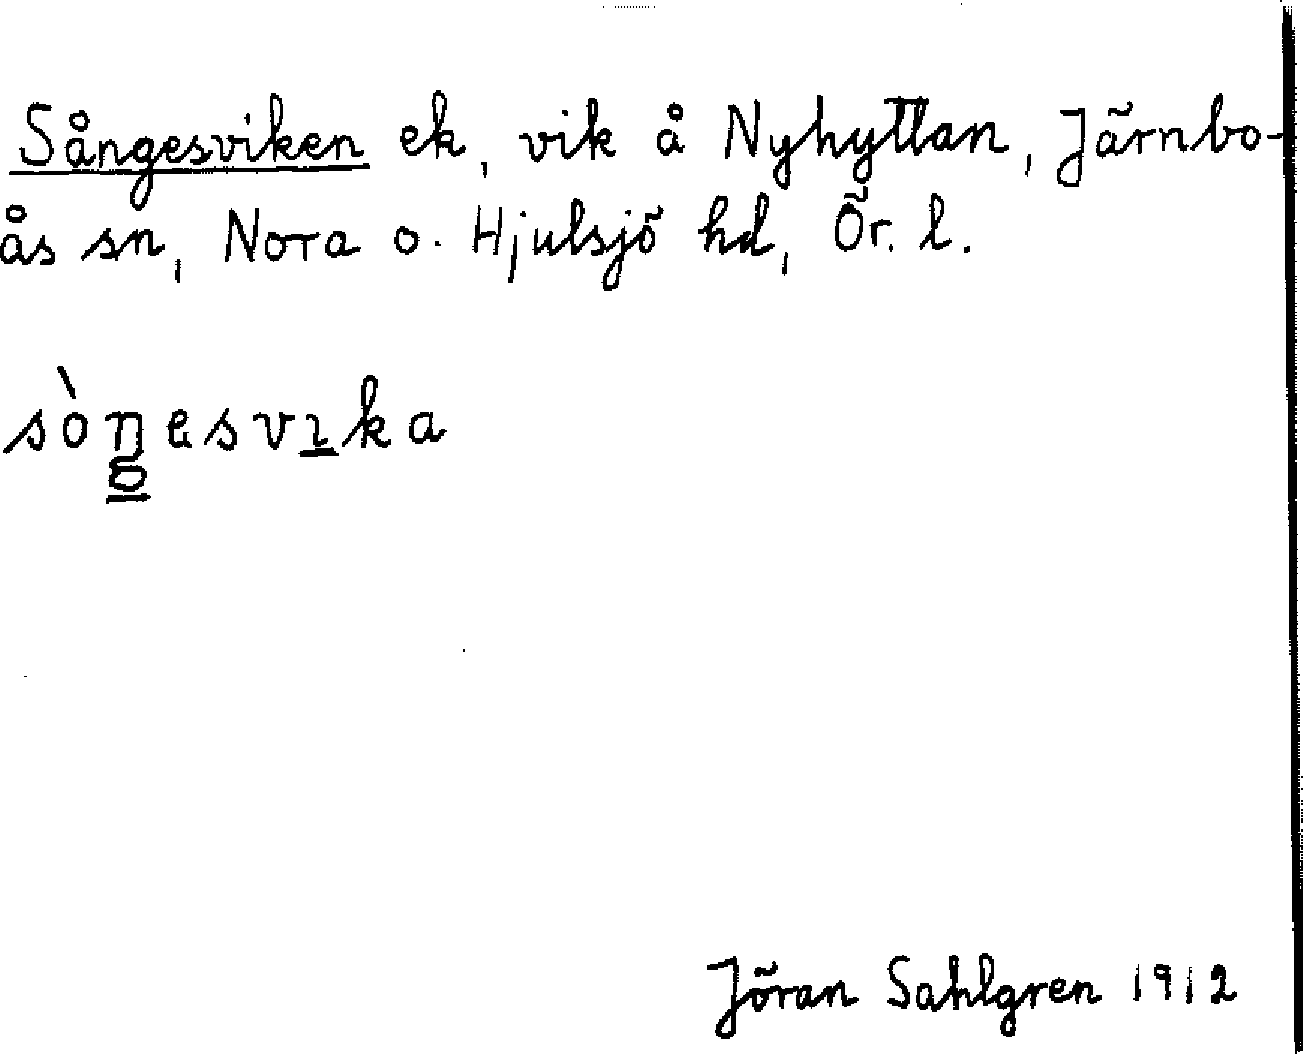 Sångesviken ek, vik å Nyhyttan, Järnbo-
ås sn, Nora o. Hjulsjö hd, Ör. l.
sòŋesvıka
Jöran Sahlgren 1912